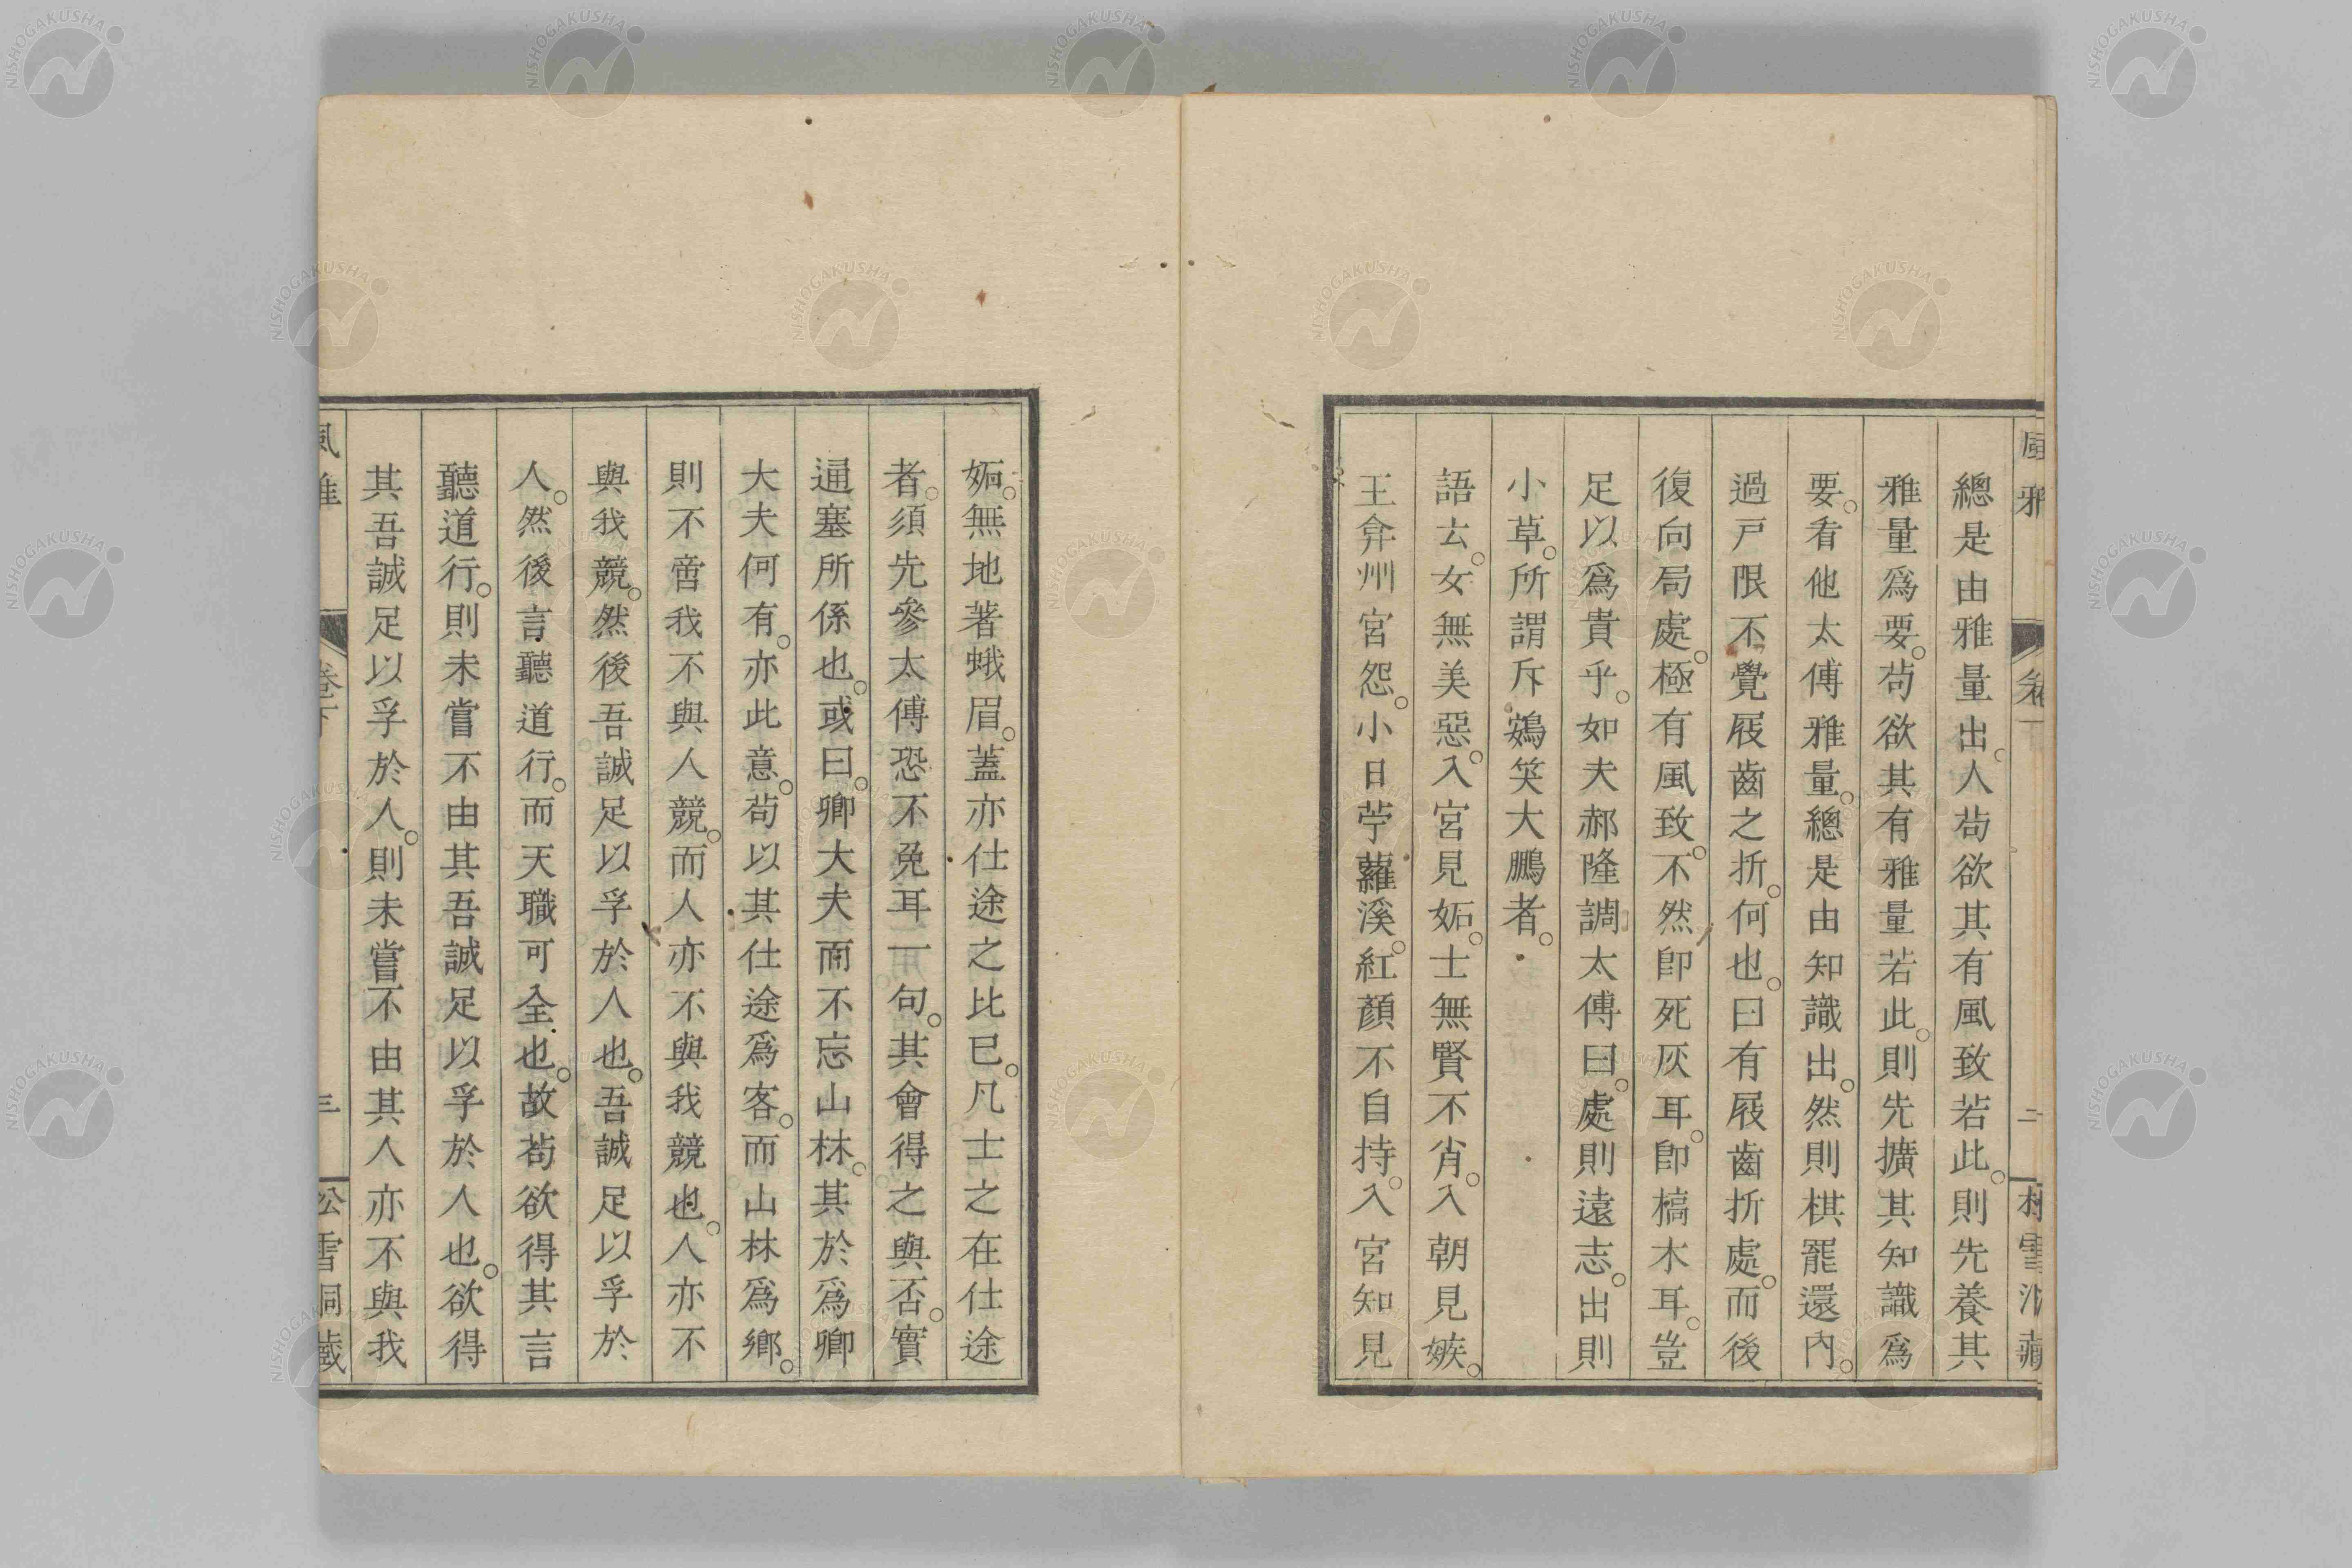 總是由雅量出。人苟欲其有風致若此。則先養其
雅量爲要。苟欲其有雅量若此。則先擴其知識爲
要。看他太傅雅量。總是由知識出。然則棋罷還內。
過戸限不覺屐齒之折。何也。曰有屐齒折處。而後
復向局處。極有風致。不然卽死灰耳。卽槁木耳。豈
足以爲貴乎。如夫郝隆調太傅曰。處則遠志。出則
小草。所謂斥鷃笑大鵬者。
語云。女無美惡。入宮見妬。士無賢不肖。入朝見嫉。
王弇州宮怨。小日苧蘿溪。紅顏不自持。入宮知見
妬。無地著蛾眉。蓋亦仕途之比已。凡士之在仕途
者。須先參太傅恐不免耳一句。其會得之與否。實
通塞所係也。或曰。卿大夫而不忘山林。其於爲卿
大夫何有。亦此意。苟以其仕途爲客。而山林爲鄉。
則不啻我不與人競。而人亦不與我競也。人亦不
與我競。然後吾誠足以孚於人也。吾誠足以孚於
人。然後言聽道行。而天職可全也。故苟欲得其言
聽道行。則未嘗不由其吾誠足以孚於人也。欲得
其吾誠足以孚於人。則未嘗不由其人亦不與我
風雅
卷下
三
松雪洞藏
NISHOGAKUSHA